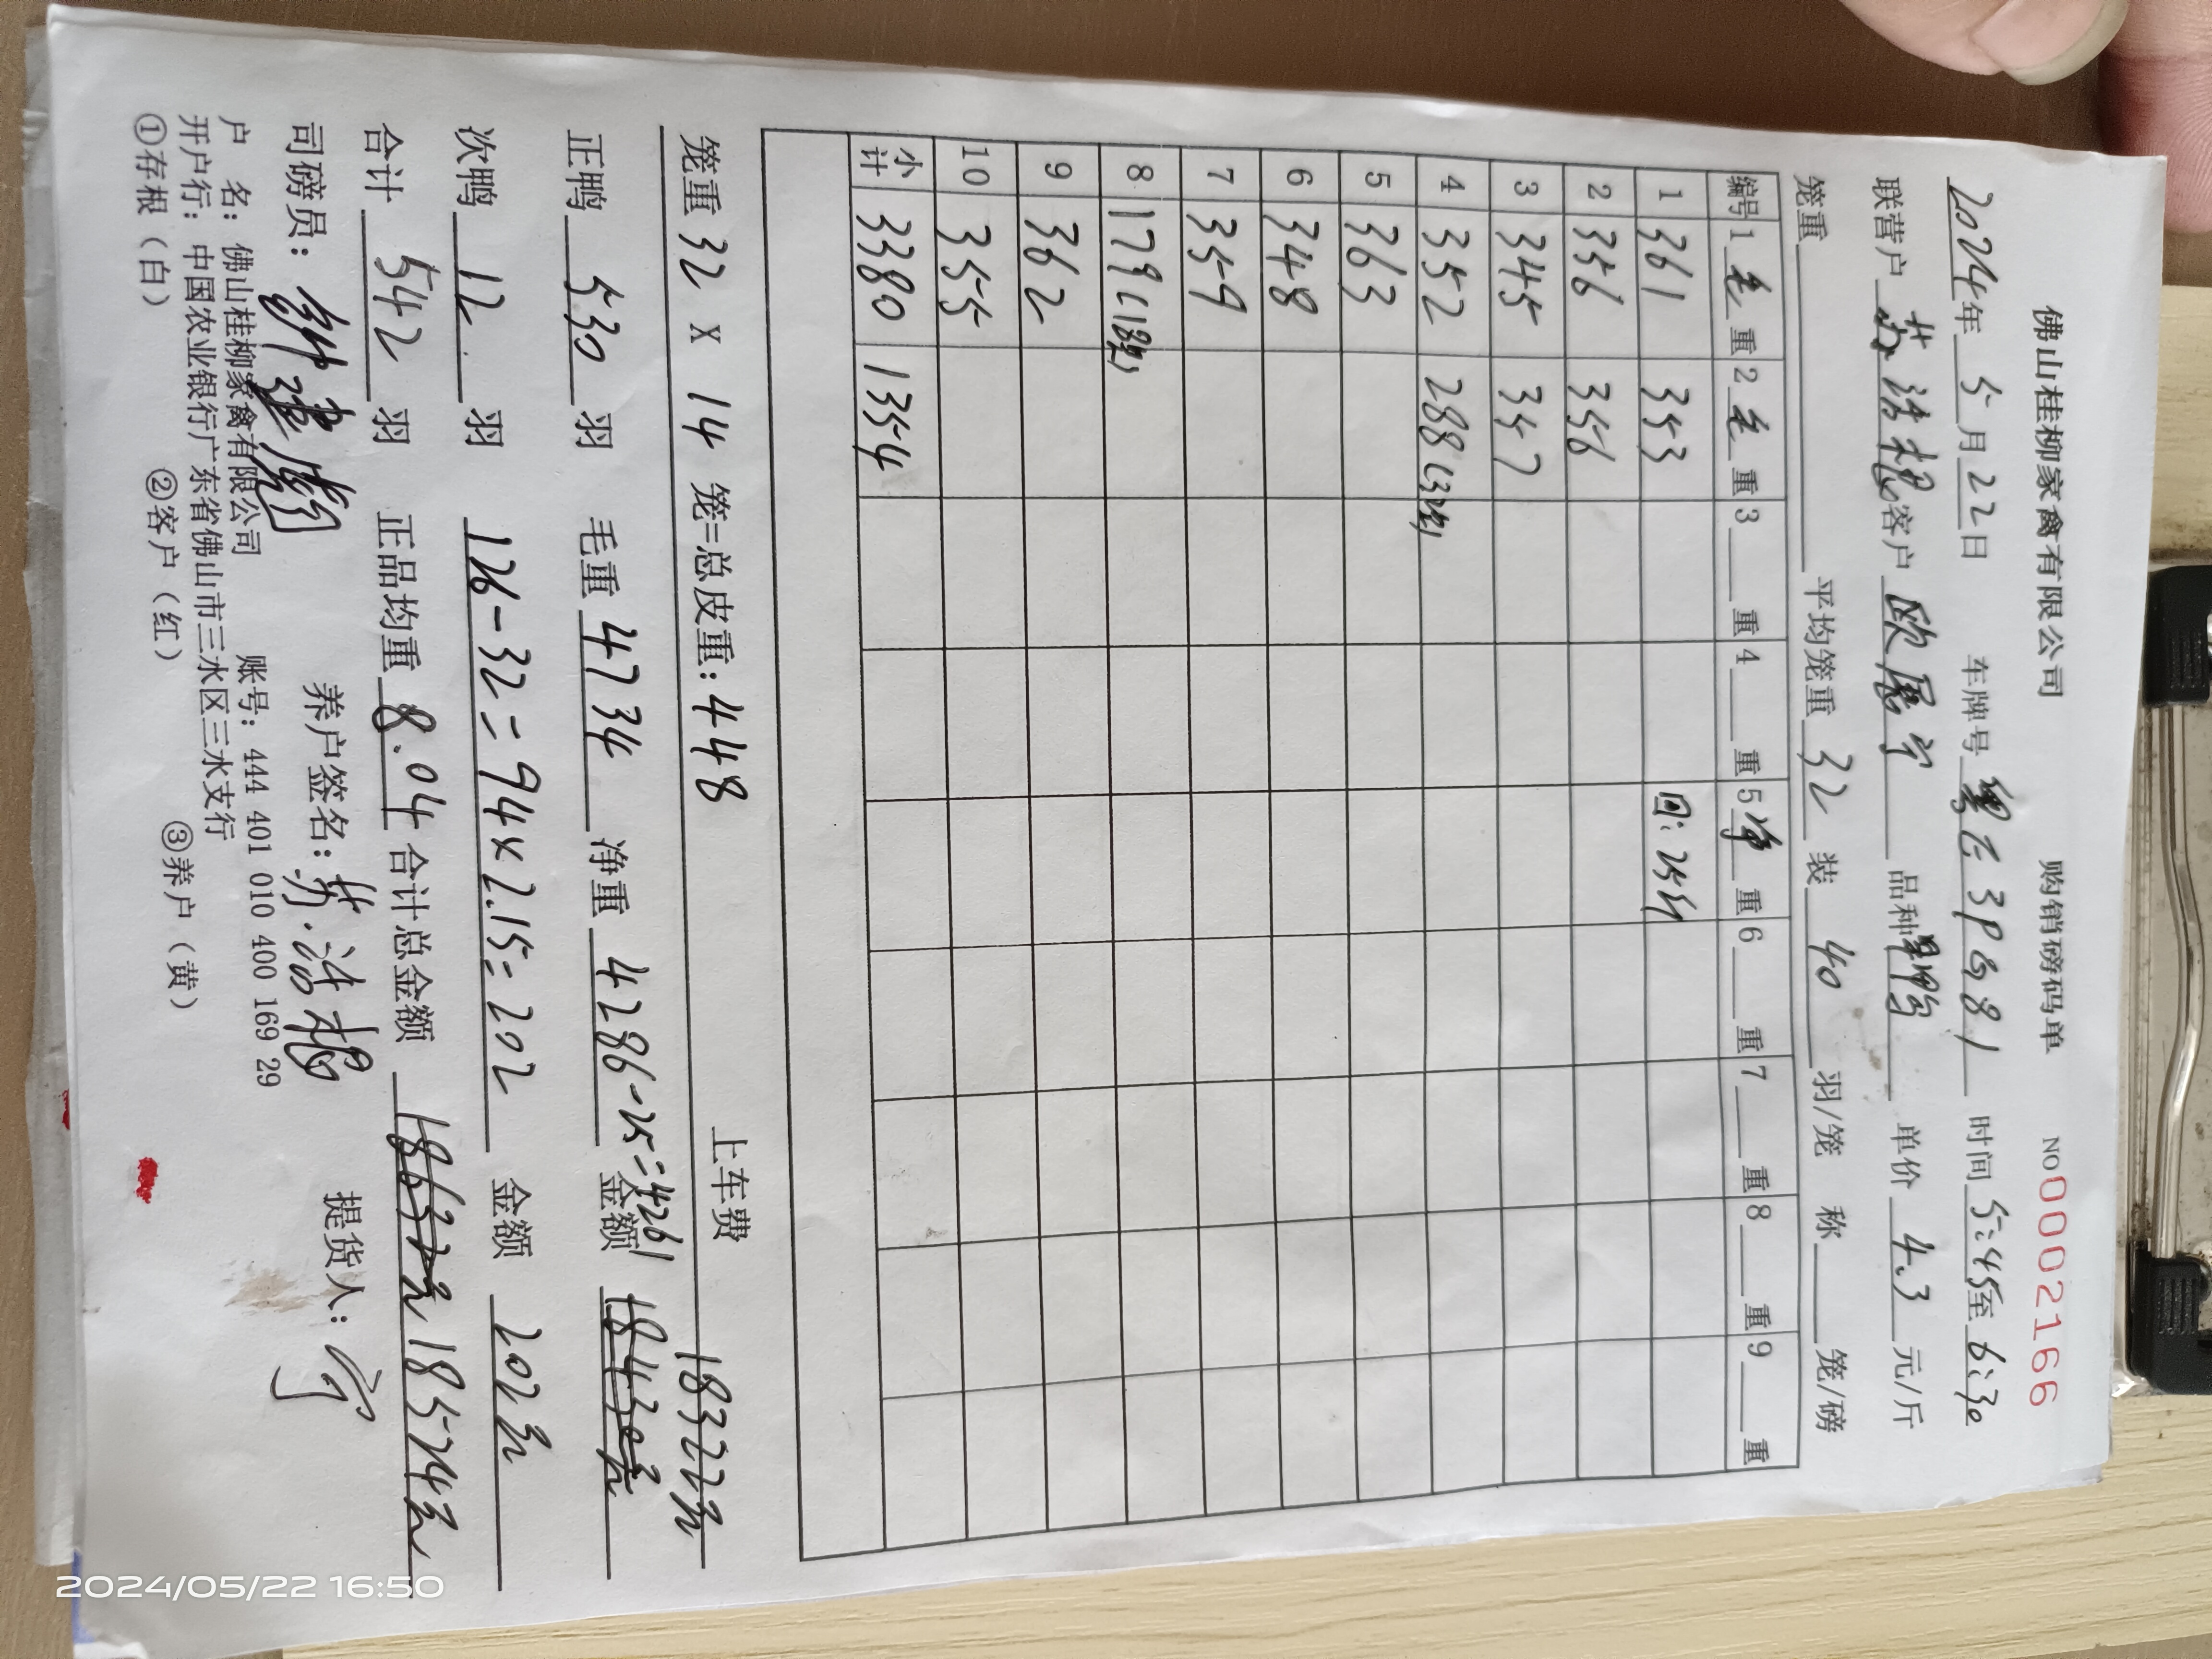 佛山桂柳家禽有限公司 购销磅码单 NO0002166
2024年5月22日 车牌号 粤E3PG81 时间5:45至6:30
联营户 苏洪相 客户 欧展宁 品种 单价 4.3 元/斤
笼重 平均笼重 32 装 40 羽/笼 称 笼/磅
编号 1 毛 重 2 毛 重 3 重 4 重 5 净 重 6 重 7 重 8 重 9 重
1 361 353 回:25斤
2 356 356
3 345 347
4 352 288(3
5 363
6 348
7 359
8 179(18只)
9 362
10 355
小计 3380 1354
笼重 32 X 14 笼=总皮重:448 上车费 18322元
正鸭 530 羽 毛重 4734 净重 4286-25=4261 金额 18430元
次鸭 12 羽 126-32=94×2.15=202 金额 202元
合计 542 羽 正品均重 8.04 合计总金额 18632元 18524元
司磅员: 养户签名:苏洪相 提货人:宁
户 名:佛山桂柳家禽有限公司 账号:444 401 010 400 169 29
开户行:中国农业银行广东省佛山市三水区三水支行
①存根(白) ②客户(红) ③养户(黄)
2024/05/22 16:50